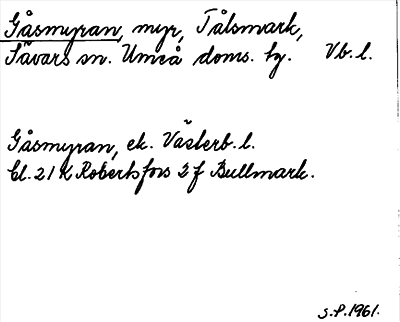 Gåsmyran, myr, Tålsmark,
Sävars sn. Umeå doms. hg. Vb. l.
Gåsmyran, ek. Västerb. l.
bl. 21 K Robertsfors 2 f Bullmark.
S.P. 1961.